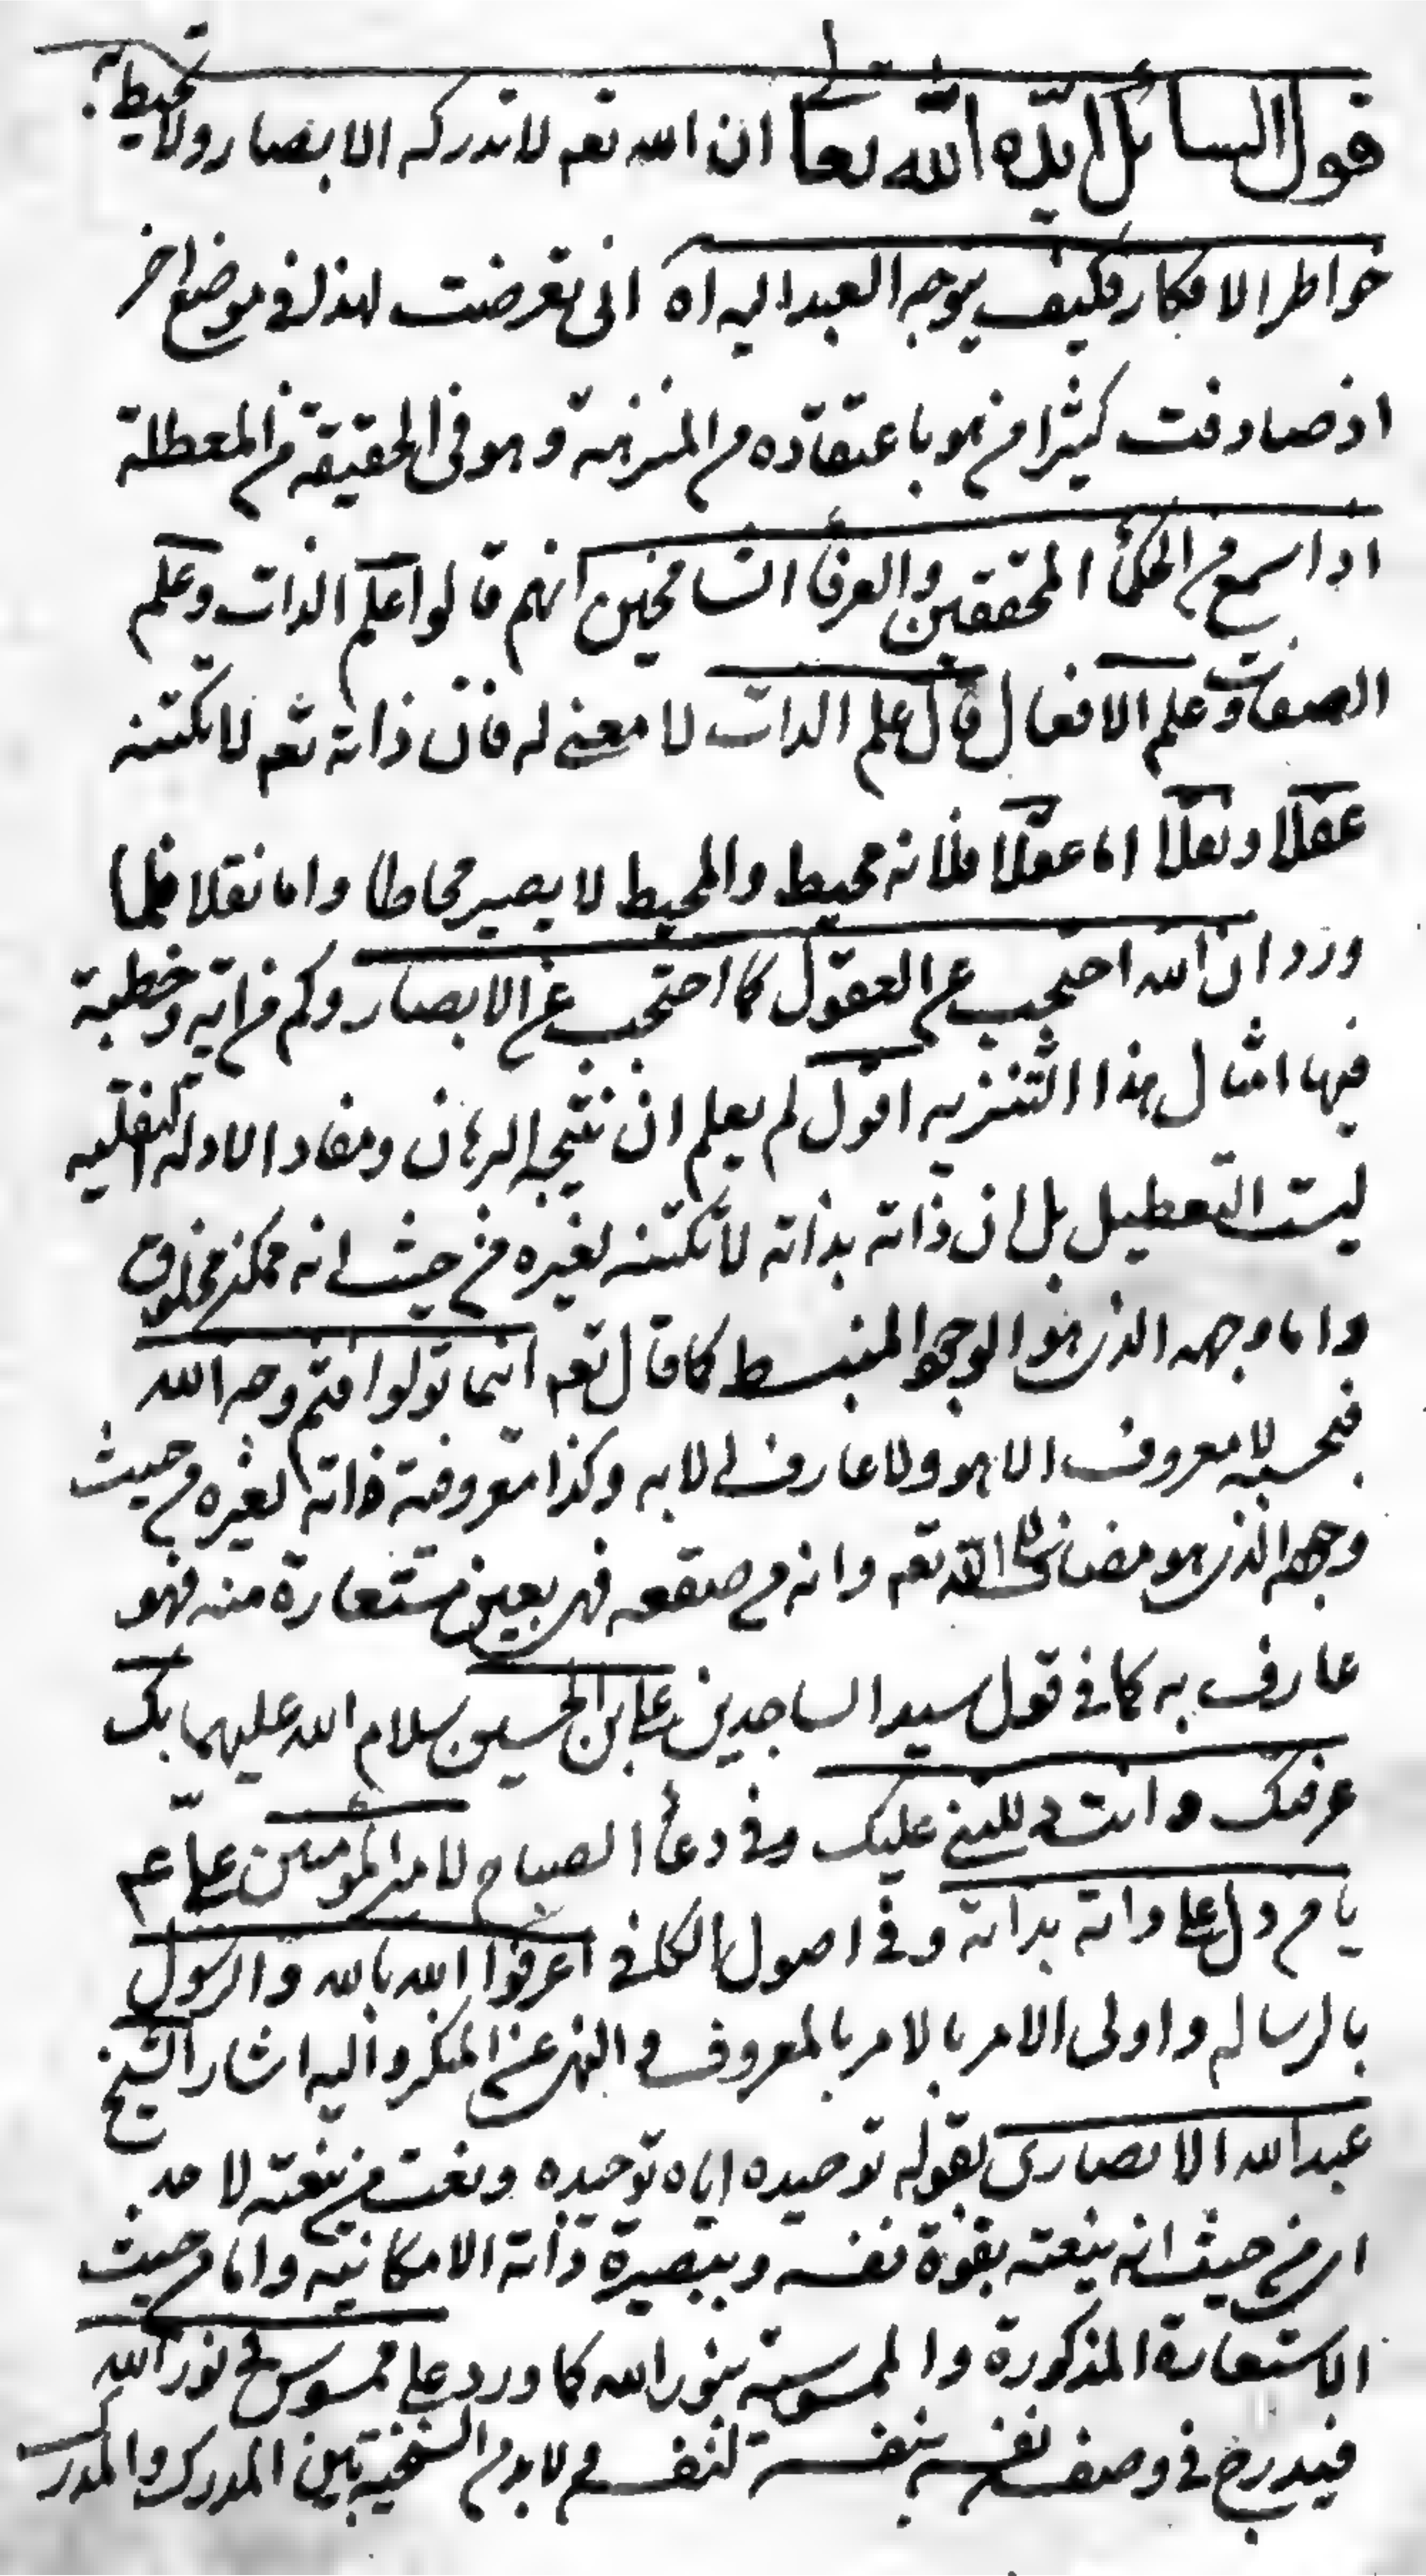 قول السائل ايّده الله تعالى ان الله تعه لا تدركه الابصار ولا تحيط به
خواطر الافكار فكيف يتوجه العبد اليه اه انى تعرضت لهذا فى موضع اخر
اذ صادفت كثيرا من هو باعتقاده من المنزهة وهو فى الحقيقة من المعطلة
اذا سمع من الحكمأ المحققين والعرفأ الشامخين انهم قالوا علم الذات وعلم
الصفات وعلم الافعال قال علم الذات لا معنى له فان ذاته تعه لا تكتنه
عقلا ونقلا اما عقلا فلانه محيط والمحيط لا يصير محاطا واما نقلا فلما
ورد ان الله احتجب عن العقول كما احتجب عن الابصار وكم من اية وخطبة
فيها امثال هذا التنزيه اقول لم يعلم ان نتيجه البرهان ومفاد الادله النقليه
ليست التعطيل بل ان ذاته بذاته لا تكتنه لغيره من حيث انه ممكن مخلوق
واما وجهه الذى هو الوجود المنبسط كما قال تعه اينما تولوا فثم وجه الله
فبحسبه لا معروف الا هو ولا عارف الا به وكذا معروفية ذاته لغيره من حيث
وجهه الذى هو مضاف الى الله تعه وانه من صقعه فهى بعين مستعارة منه فهو
عارف به كما فى قول سيد الساجدين على ابن الحسين سلام الله عليهما بك
عرفتك وانت دللتنى عليك وفى دعأ الصباح لامير المؤمنين علىّ عم
يا من دل على ذاته بذاته وفى اصول الكافى اعرفوا الله بالله والرسول
بالرساله واولى الامر بالامر بالمعروف والنهى عن المنكر واليه اشار الشيخ
عبد الله الانصارى بقوله توحيده اياه توحيده ونعت من ينعته لاحد
اى من حيث انه ينعته بقوة نفسه وبتبصيرة ذاته الامكانية واما من حيث
الاستعارة المذكورة والممسوسية بنور الله كما ورد على ممسوس فى نور الله
فيندرج فى وصف نفسه بنفسه لنفسه ثم لا بد من السنخية بين المدرك والمدرك